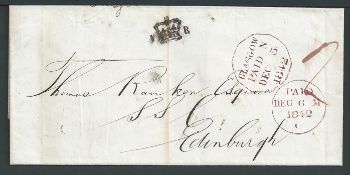 GLASGOW
PAID N
DEC 5
1842
PAID
DEC 6 M
1842
Thomas Rankon Esquire
S S C
Edinburgh